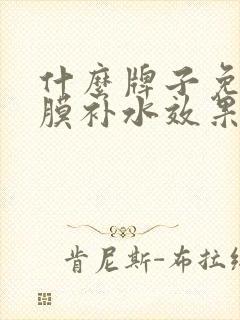 什麽牌子免
膜补水效果
肯尼斯-布拉